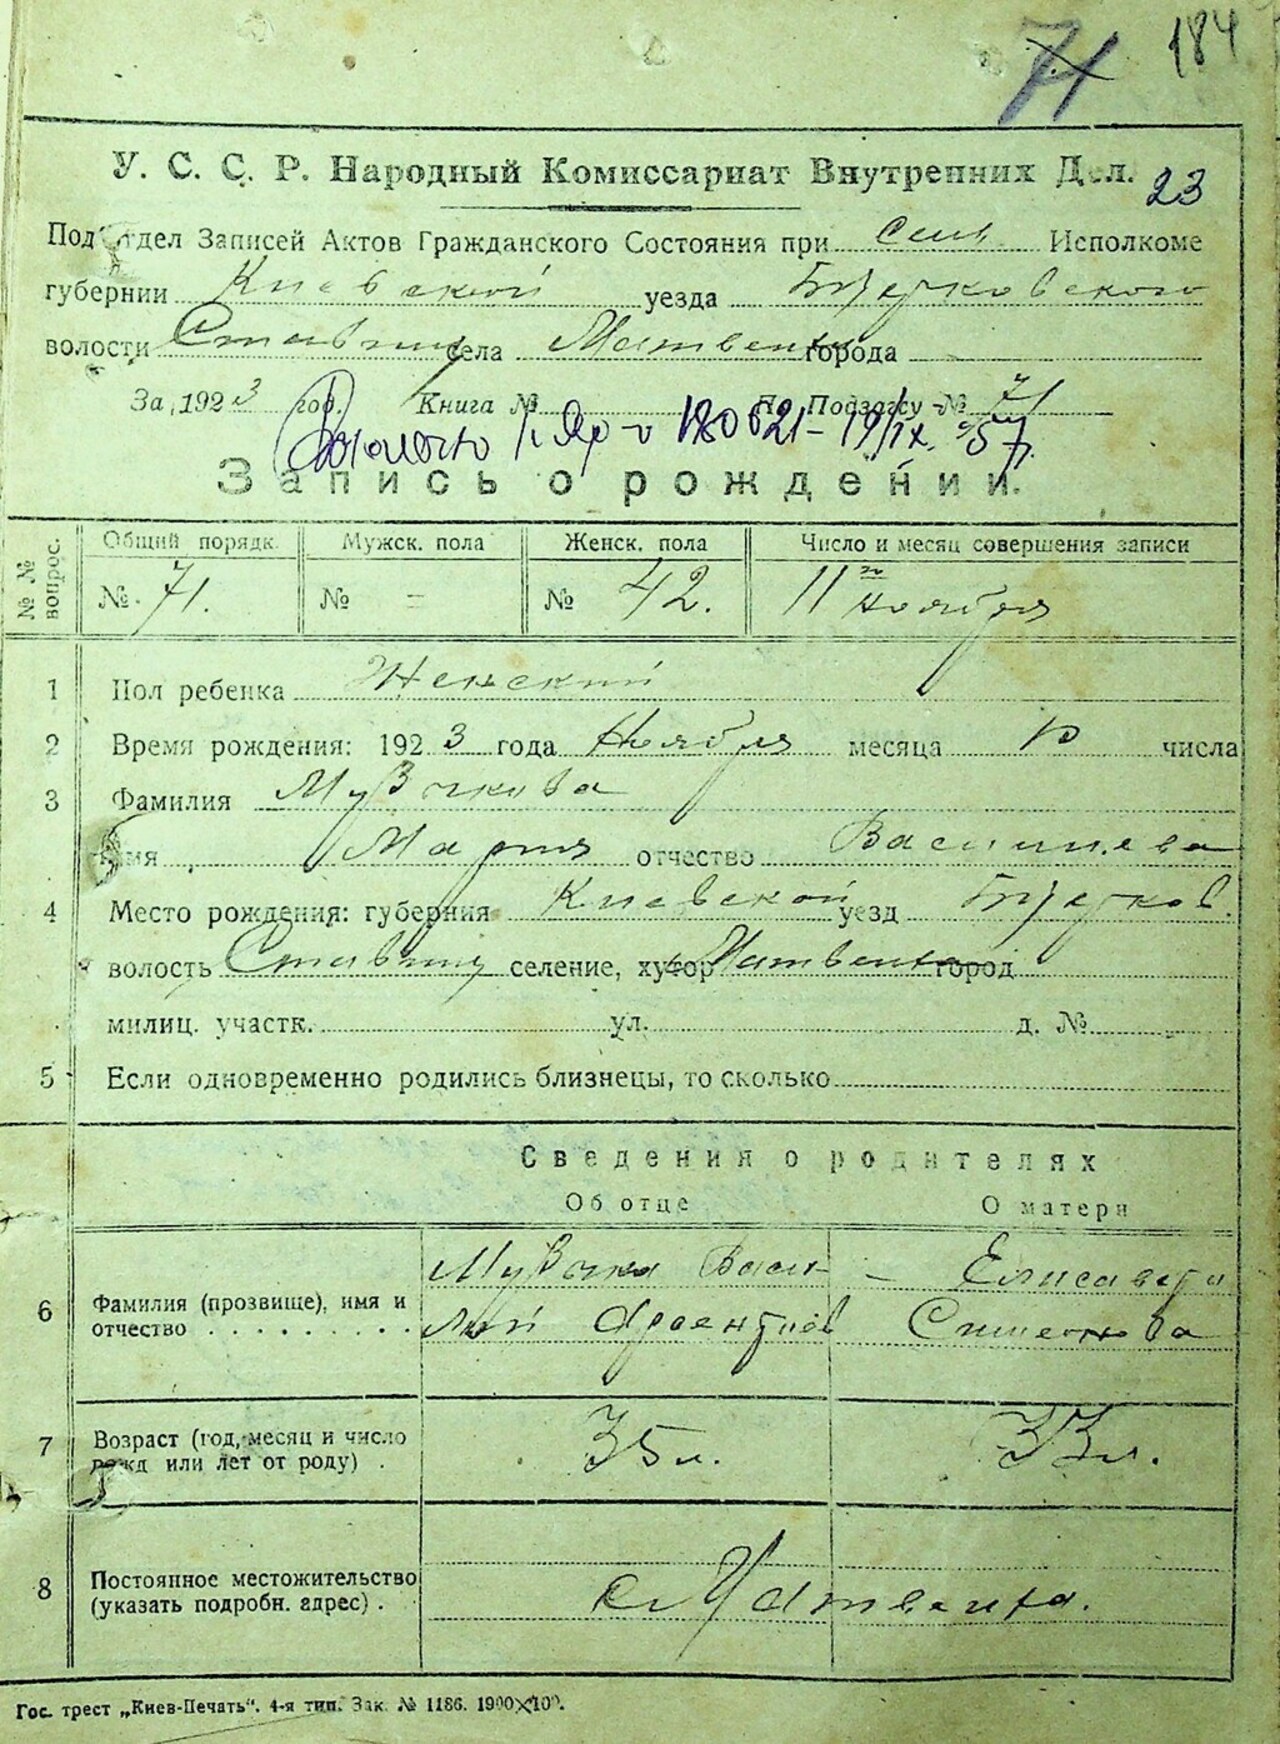 71 184
У. С. С. Р. Народный Комиссариат Внутренних Дел.
23
Подотдел Записей Актов Гражданского Состояния при Сель Исполкоме
губернии Киевской уезда
волости села Матвеиха города
За 1923 год. Книга № По Подзагсу № 71
180621 – 19/IX 57
Запись о рождении.
№№ вопрос. Общий порядк. Мужск. пола Женск. пола Число и месяц совершения записи
№ 71. № = № 42. 11го ноября
1 Пол ребенка Женский
2 Время рождения: 1923 года Ноября месяца 10 числа
3 Фамилия Музычкова
Имя Мария отчество Васильева
4 Место рождения: губерния Киевской уезд
волость селение, хутор Матвеиха город
милиц. участк. ул. д. №
5 Если одновременно родились близнецы, то сколько
Сведения о родителях
Об отце О матери
6 Фамилия (прозвище), имя и отчество
Музычка Васи- – Елисавета
лий Семенова
7 Возраст (год, месяц и число рожд или лет от роду) . 35 л. 33 л.
8 Постоянное местожительство (указать подробн. адрес) .
с. Матвеиха.
Гос. трест „Киев-Печать“. 4-я тип. Зак. № 1186. 1900×100.